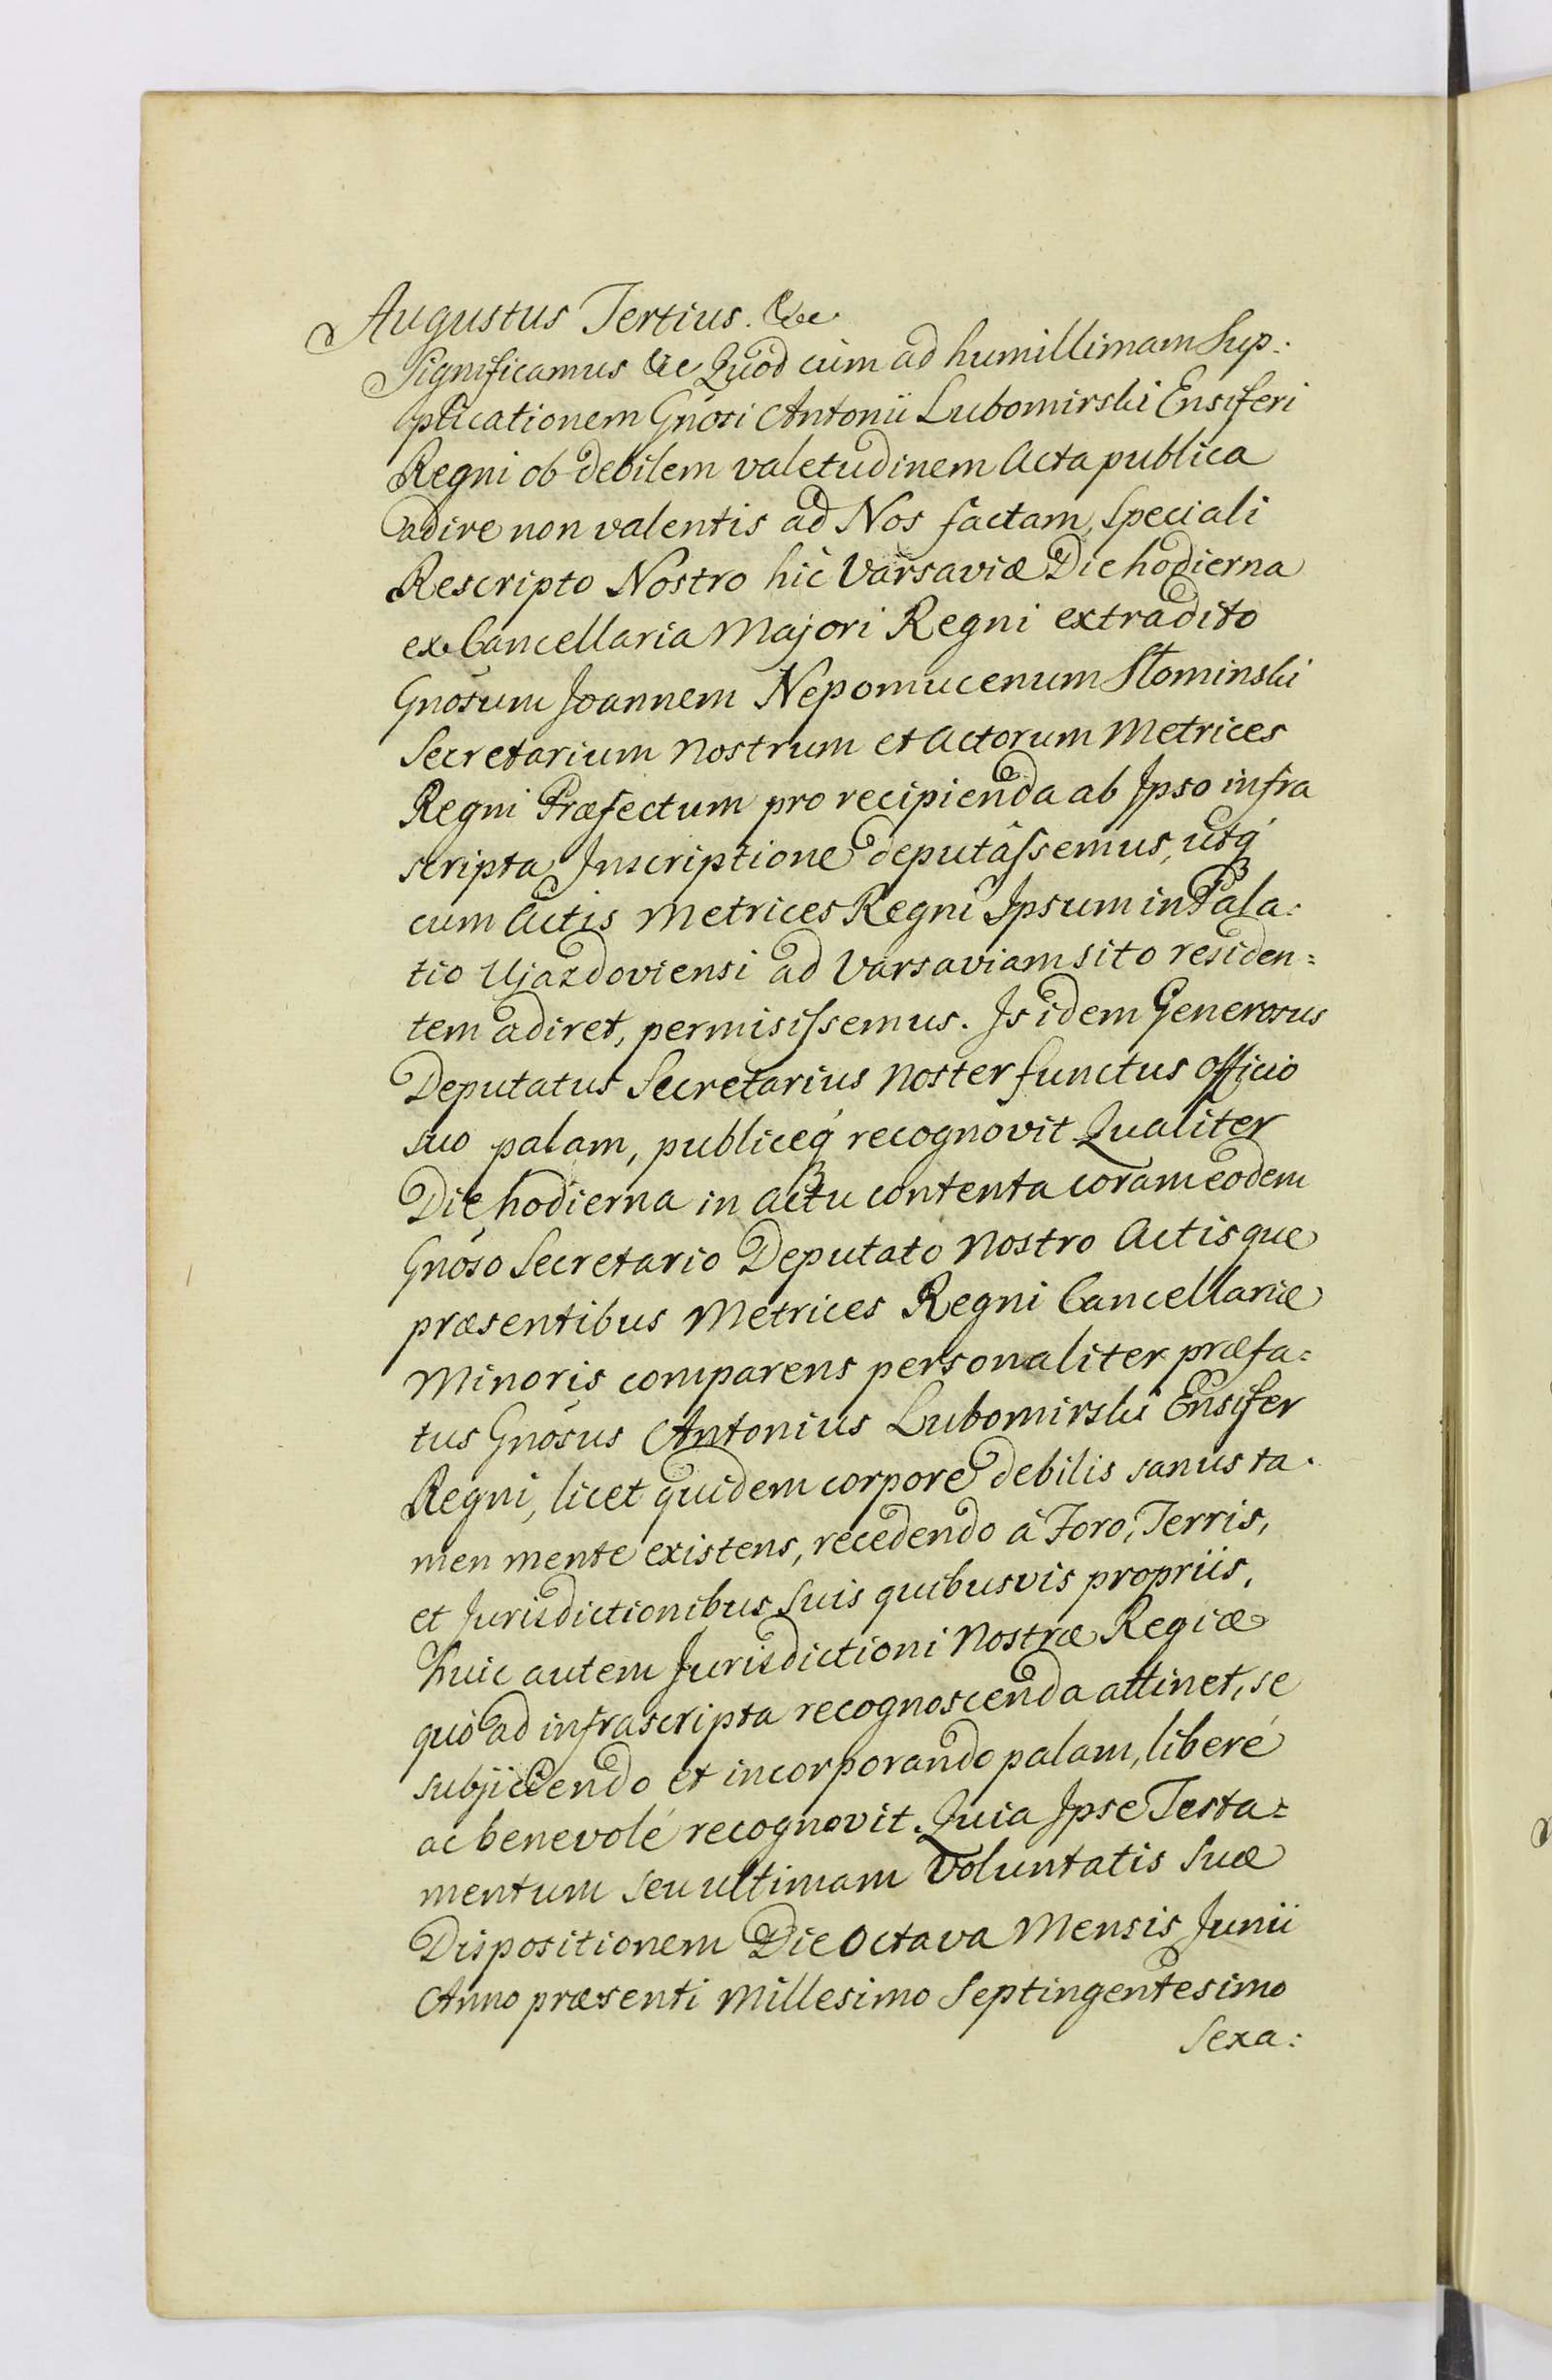 Augustus Tertius. &c
Significamus &c Quòd cùm ad humillimam Sup:
plicationem Gn̄osi Antonii Lubomirski Ensiferi
Regni ob debilem valetudinem Acta publica
adire non valentis ad Nos factam, Speciali
Rescripto Nostro hic Varsaviæ Die hodierna
ex Cancellaria Majori Regni extradito
Gnōsum Joannem Nepomucenum Słominski
Secretarium nostrum et Actorum Metrices
Regni Præfectum pro recipienda ab Ipso infra
scripta Inscriptione deputâssemus, utq́
cum Actis Metrices Regni Ipsum in Pala:
tio Ujazdoviensi ad Varsaviam sito residen:
tem adiret, permisissemus. Is idem Generosus
Deputatus Secretarius noster functus Officio
suo palam, publiceq́ recognovit Qualiter
Die hodierna in actu contenta coram eodem
Gnōso Secretario Deputato nostro Actisque
præsentibus Metrices Regni Cancellariæ
Minoris comparens personaliter præfa:
tus Gnōsus Antonius Lubomirski Ensifer
Regni, licet quidem corpore debilis sanus ta.
men mente existens, recedendo à Foro, Terris,
et Jurisdictionibus Suis quibusvis propriis,
huic autem Jurisdictioni Nostræ Regiæ
quò ad infrascripta recognoscenda attinet, se
subjiciendo et incorporando palam, liberé
ac benevolé recognovit. Quia Ipse Testa:
mentum seu ultimam Voluntatis Suæ
Dispositionem Die Octava Mensis Junii
Anno præsenti Millesimo Septingentesimo
Sexa: